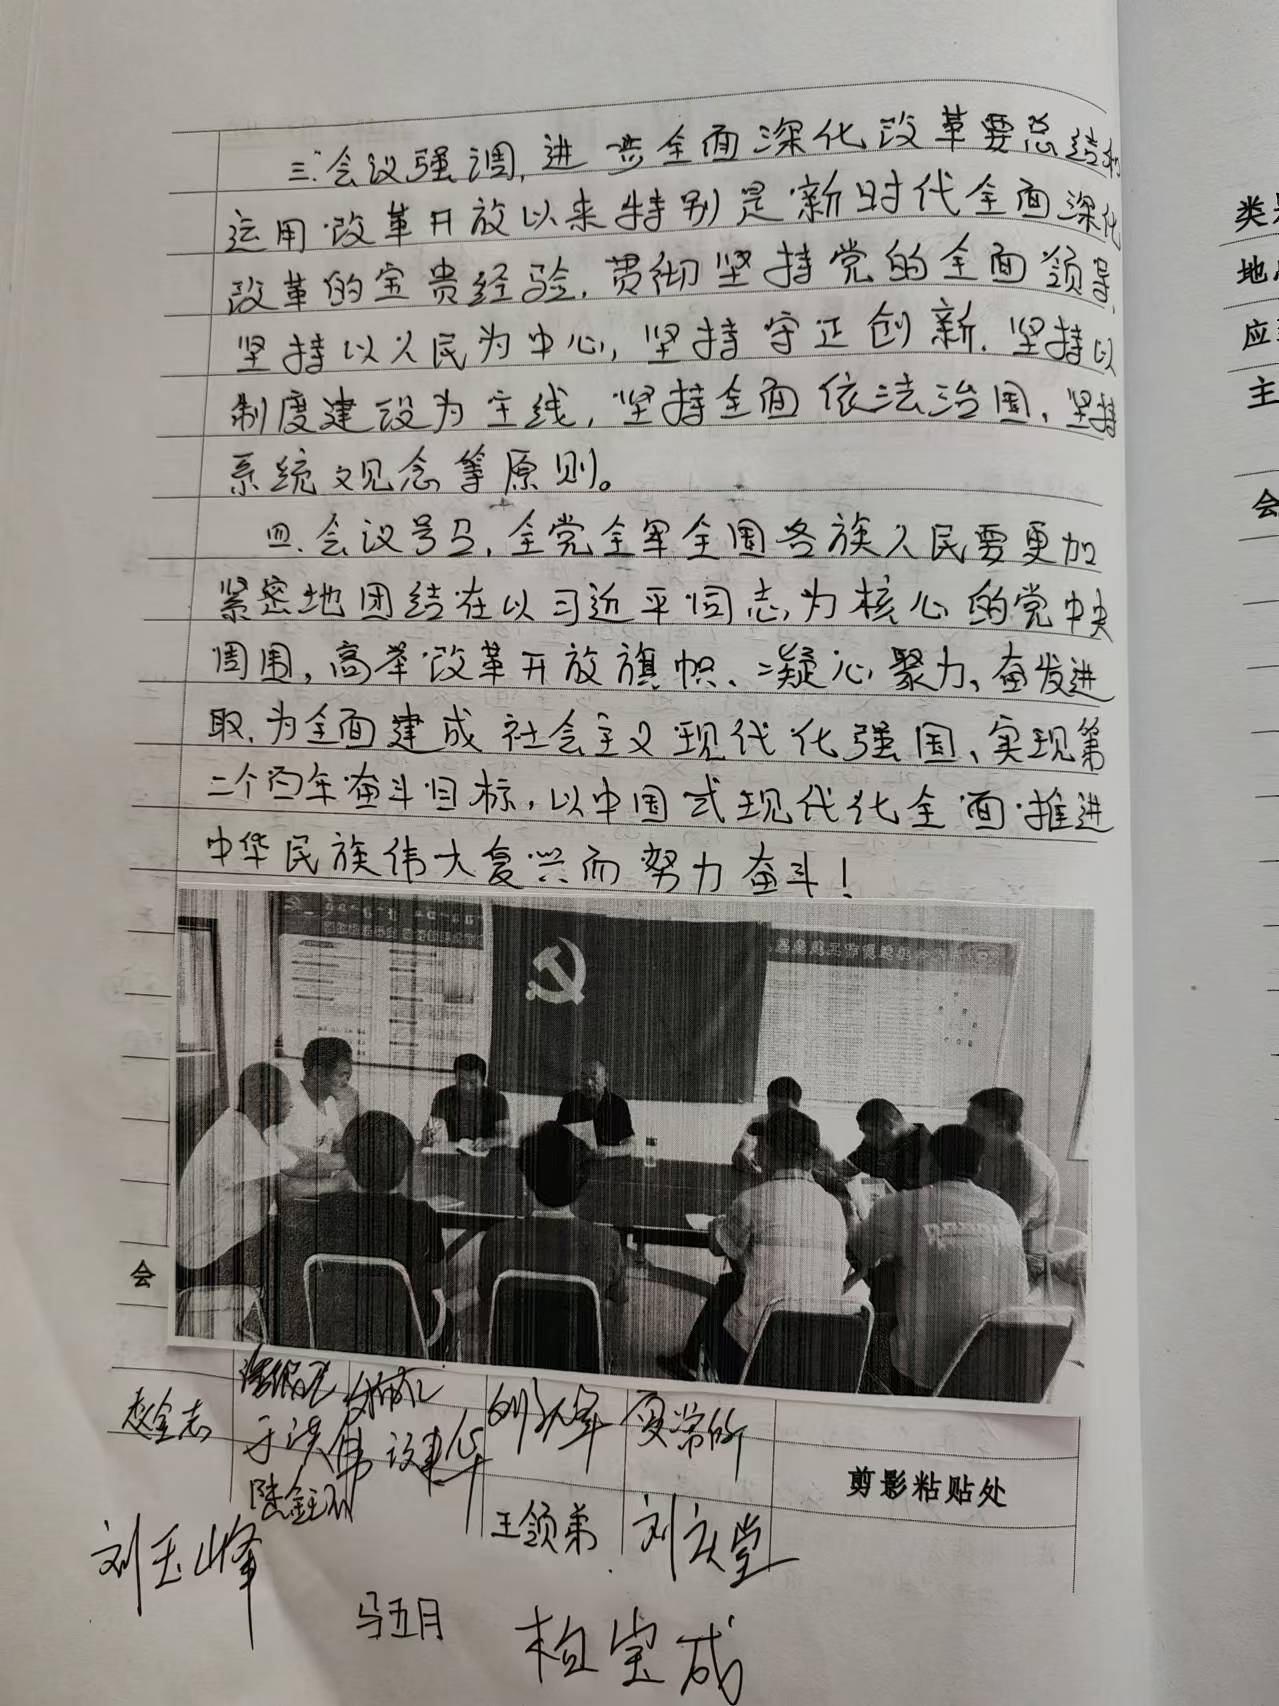 三.会议强调,进一步全面深化改革要总结和
运用改革开放以来特别是新时代全面深化
改革的宝贵经验.贯彻坚持党的全面领导,
坚持以人民为中心,坚持守正创新.坚持以
制度建设为主线,坚持全面依法治国、坚持
系统观念等原则。
四.会议号召,全党全军全国各族人民要更加
紧密地团结在以习近平同志为核心的党中央
周围,高举改革开放旗帜、凝心聚力、奋发进
取.为全面建成社会主义现代化强国、实现第
二个百年奋斗目标,以中国式现代化全面推进
中华民族伟大复兴而努力奋斗!
会
赵金志
于洪伟
剪影粘贴处
王领弟
刘庆堂
刘玉峰
马五月
柏宝成
类
地
应
主
会